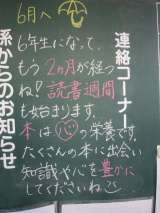 連絡コーナー
係からのお知らせ
6月へ
6年生になって、
もう2カ月が経つ
ね！読書週間
も始まります。
本は心の栄養です。
たくさんの本に出会い
知識や心を豊かに
してくださいね。